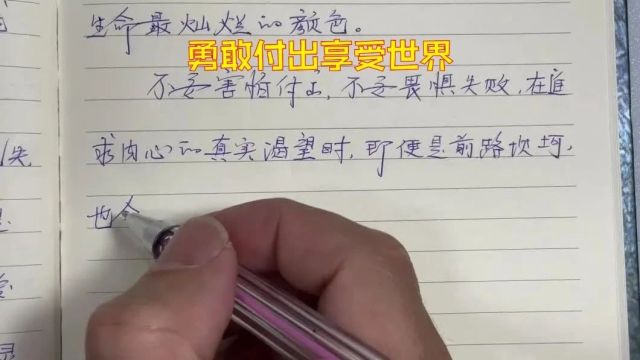 生命最灿烂的颜色。
勇敢付出享受世界
不要害怕付出,不要畏惧失败,在追
求内心的真实渴望时,即便是前路坎坷,
也会
失
录